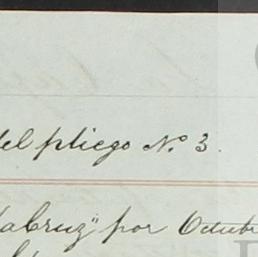 del pliego Nº 3
laCruz" por Octub